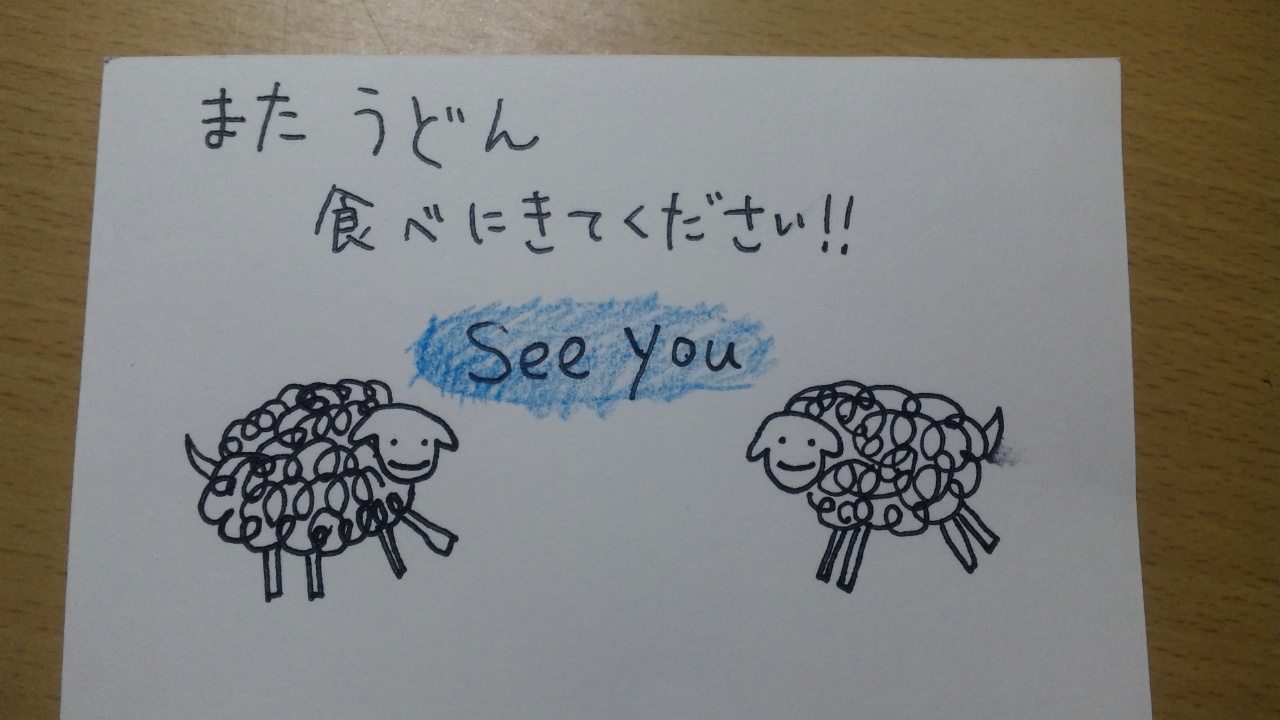 また うどん
食べにきてください!!
See you